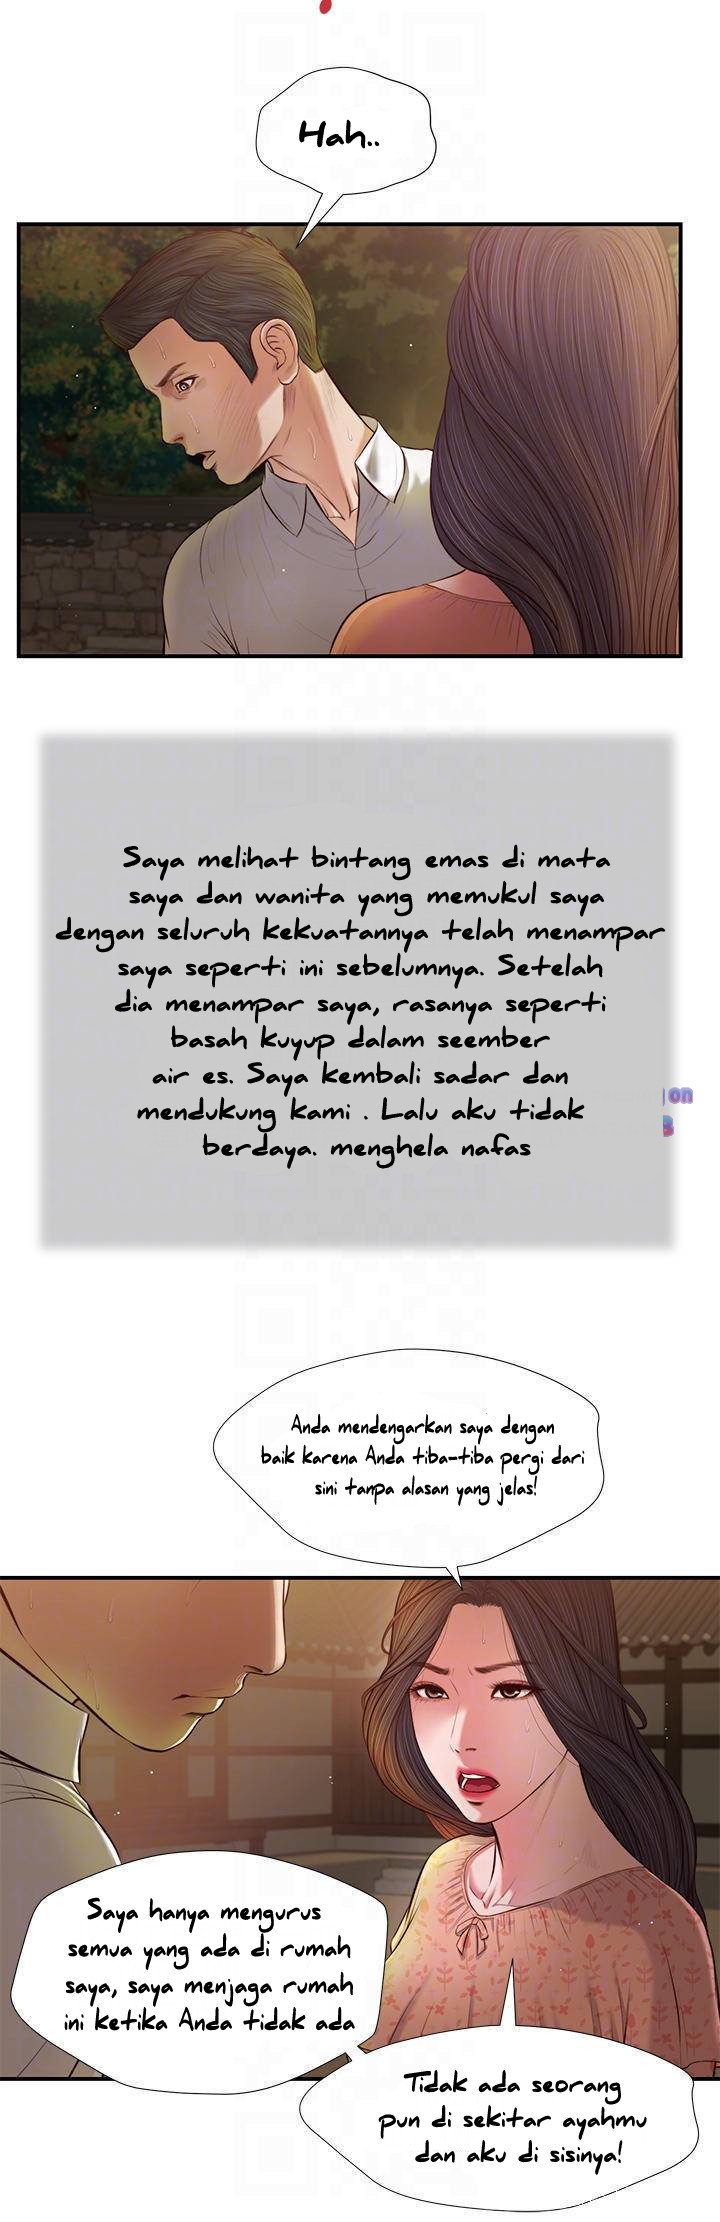 Hah..
Saya melihat bintang emas di mata
saya dan wanita yang memukul saya
dengan seluruh kekuatannya telah menampar
saya seperti ini sebelumnya. Setelah
dia menampar saya, rasanya seperti
basah kuyup dalam seember
air es. Saya kembali sadar dan
mendukung kami . Lalu aku tidak
berdaya. menghela nafas
Anda mendengarkan saya dengan
baik karena Anda tiba-tiba pergi dari
sini tanpa alasan yang jelas!
Saya hanya mengurus
semua yang ada di rumah
saya, saya menjaga rumah
ini ketika Anda tidak ada
Tidak ada seorang
pun di sekitar ayahmu
dan aku di sisinya!